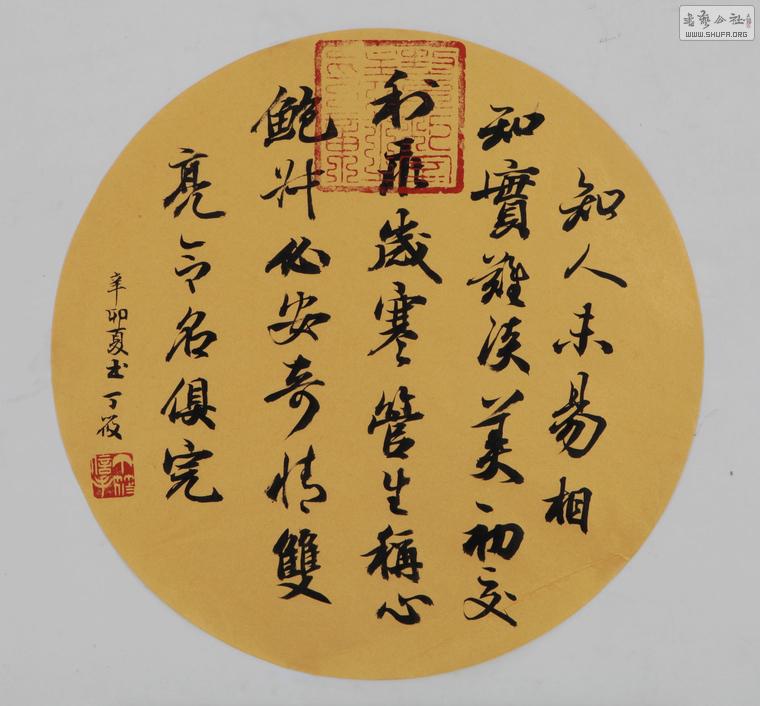 知人未易相
知實難淡美初交
利乖歲寒管生稱心
鮑叔必安奇情雙
亮令名俱完
辛卯夏书丁筱
書藝公社
WWW.SHUFA.ORG